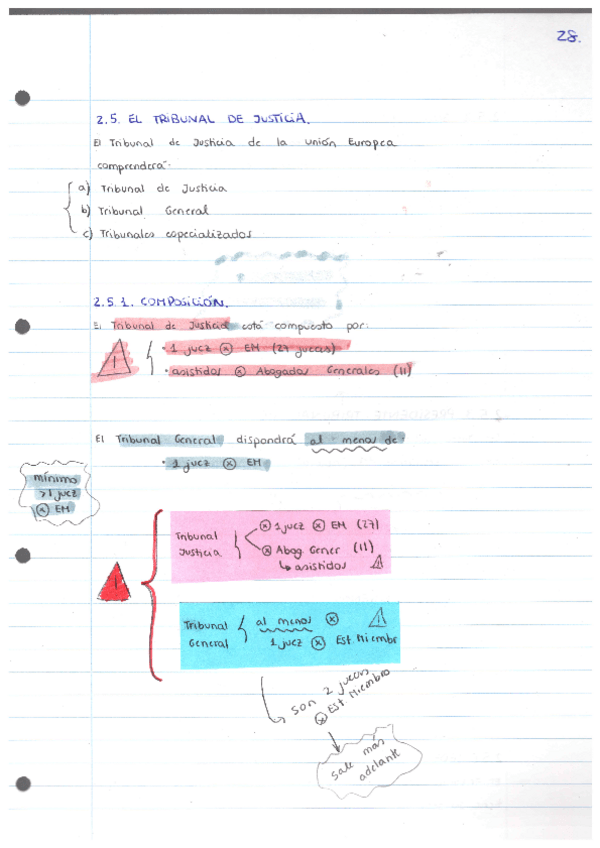 28.
2.5. EL TRIBUNAL DE JUSTICIA.
El Tribunal de Justicia de la unión Europea
comprenderá:
a) Tribunal de Justicia
b) Tribunal General
c) Tribunales especializados
2.5.1. COMPOSICIÓN.
El Tribunal de Justicia está compuesto por:
· 1 juez ⊗ EM (27 jueces)
· asistidos ⊗ Abogados Generales (11)
El Tribunal General dispondrá al menos de
· 1 juez ⊗ EM
mínimo
>1 juez
⊗ EM
Tribunal Justicia
⊗ 1 juez ⊗ EM (27)
⊗ Abog. Gener (11)
↳ asistidos
Tribunal General
al menos ⊗
1 juez ⊗ Est. Miembr
Son 2 jueces
⊗ Est. Miembro
Sale más
adelante